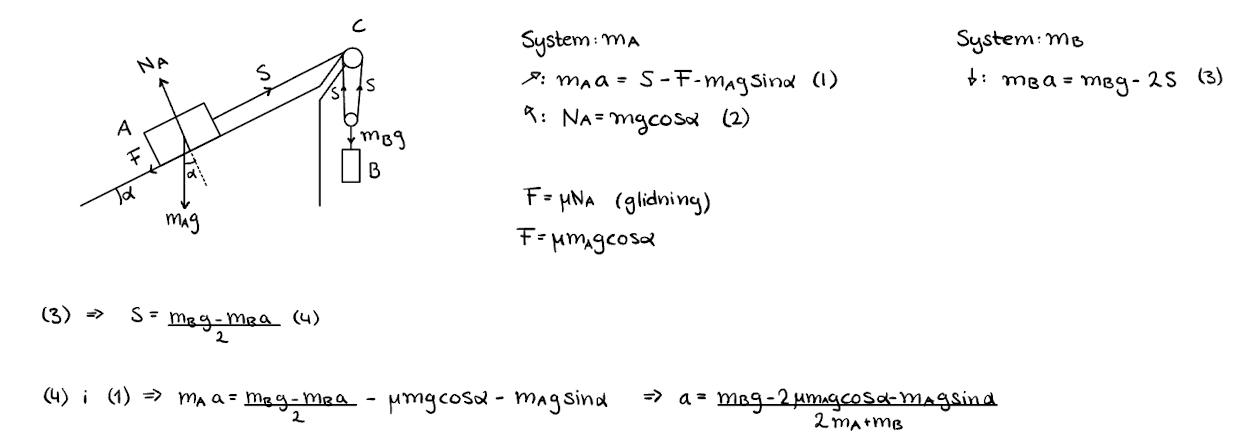 C
N_A
S
S S
A
F
m_B g
B
α
α
m_A g
System: m_A
↗: m_A a = S - F - m_A g sinα (1)
↖: N_A = mg cosα (2)
F = μN_A (glidning)
F = μm_A g cosα
System: m_B
↓: m_B a = m_B g - 2S (3)
(3) ⇒ S = (m_B g - m_B a)/2 (4)
(4) i (1) ⇒ m_A a = (m_B g - m_B a)/2 - μmg cosα - m_A g sinα ⇒ a = (m_B g - 2μm_A g cosα - m_A g sinα)/(2m_A + m_B)